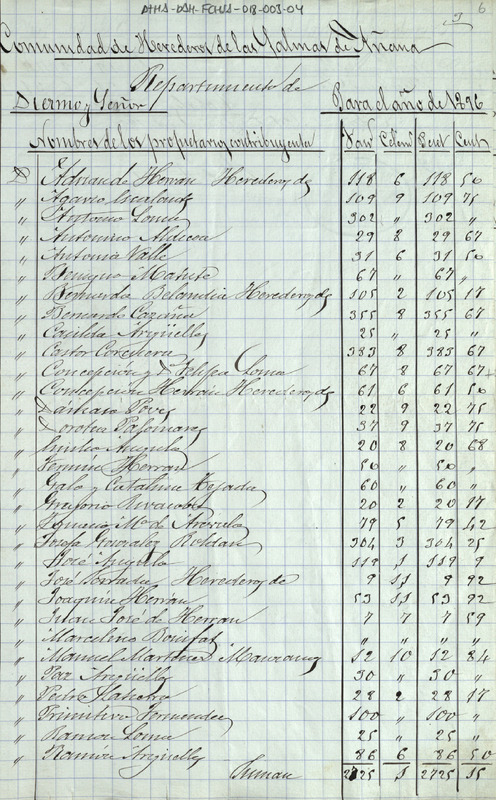 ATHA-DAH-FCHSA-018-003-04
6
Comunidad de Herederos de las Salinas de Añana
Repartimiento de
Diezmo y Señor Para el año de 1896
Nombres de los propietarios contribuyentes Fan Celem Peset Cent
D Adriande Herran Herederos de 118 6 118 50
" 109 9 109 75
" Antonio Loma 302 " 302 "
" Antonino 29 8 29 67
" Antonia Valle 31 6 31 50
" Benigno Matute 67 " 67 "
" Bernarda Belandia Herederos de 105 2 105 17
" Bernardo 355 8 355 67
" Casilda Argüelles 25 " 25 "
" Castor 383 8 383 67
" Concepcion y Dª Felipa Loma 67 8 67 67
" Concepcion Herran Herederos de 61 6 61 50
" Poves 22 9 22 75
" Dorotea Palomares 37 9 37 75
" Emilio Angulo 20 8 20 68
" Fermin Herran 50 " 50 "
" Galo y Catalina Tejada 60 " 60 "
" Gregorio 20 2 20 17
" Ygnacio Mª de 79 5 79 42
" Josefa Gonzalez Roldan 304 3 304 25
" José Angulo 119 1 119 9
" José Herederos de 9 11 9 92
" Joaquin Herran 53 11 53 92
" Juan José de Herran 7 7 7 59
" Marcelino " " " "
" Manuel Martinez 12 10 12 84
" Paz Argüelles 30 " 30 "
" Pedro 28 2 28 17
" Primitivo Fernandez 100 " 100 "
" Ramon Loma 25 " 25 "
" Ramón Argüelles 86 6 86 50
Suman 2725 1 2725 15